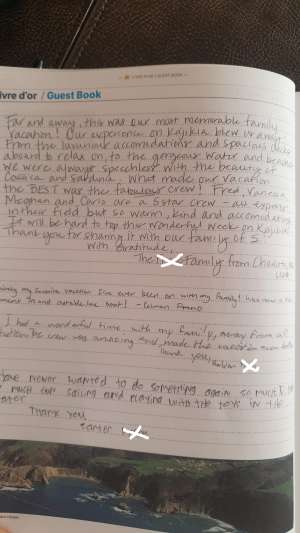 LIVRE D'OR / GUEST BOOK
ivre d'or / Guest Book
Far and away, this was our most memorable family
vacation! Our experience on Kajikia blew us away.
From the luxurious accomodations and spacious decks
aboard to relax on, to the gorgeous water and beaches
we were always speechless with the beauty of
Corsica and Sardinia. What made our vacation
the BEST was the fabulous crew! Fred, Vanessa
Meghan and Carlo are a 5 star crew - all experts
in their field but so warm, kind and accomodating
It will be hard to top this wonderful week on Kajikia
Thank you for sharing it with our family of 5.
With Gratitude,
The family from
my favorite vacation I've ever been on with my family!
and outside the boat! -
I had a wonderful time with my family, away from all
The crew was amazing and made this vacation
Thank you,
have never wanted to do something again so much I
much fun sailing and playing with the toys in the
ater
Thank you
Carter